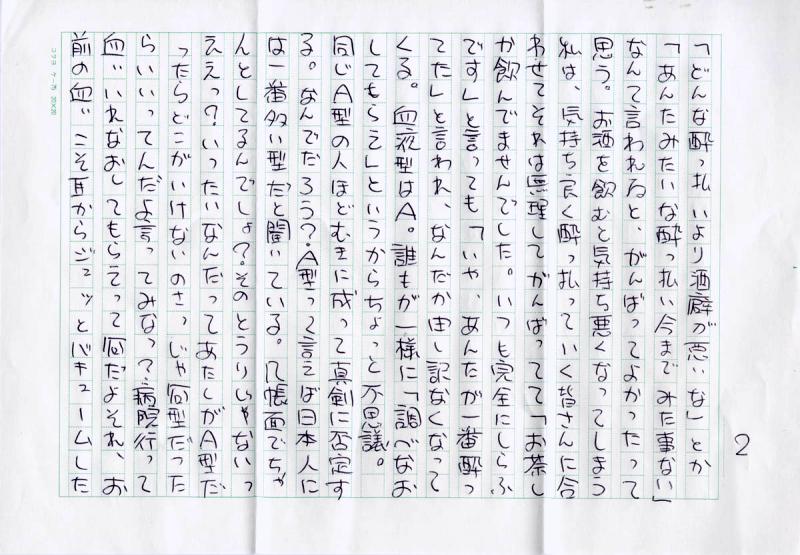 2
「どんな酔っ払いより酒癖が悪いな」とか
「あんたみたいな酔っ払い今までみた事ない」
なんて言われると、がんばってよかったって
思う。お酒を飲むと気持ち悪くなってしまう
私は、気持ち良く酔っ払っていく皆さんに合
わせてそれは無理してがんばってて「お茶し
か飲んでませんでした。いつも完全にしらふ
です」と言っても「いや、あんたが一番酔っ
てた」と言われ、なんだか申し訳なくなって
くる。血液型はA。誰もが一様に「調べなお
してもらえ」というからちょっと不思議。
同じA型の人ほどむきに成って真剣に否定す
る。なんでだろう?A型って言えば日本人に
は一番多い型だと聞いている。几帳面でちゃ
んとしてるんでしょ?そのとうりじゃないっ
ええっ?いったいなんだってあたしがA型だ
ったらどこがいけないのさっじゃ何型だった
らいいってんだよ言ってみなっ?病院行って
血いれなおしてもらえって何だよそれ、お
前の血こそ耳からジュッとバキュームした
コクヨ ケ-75 20×20